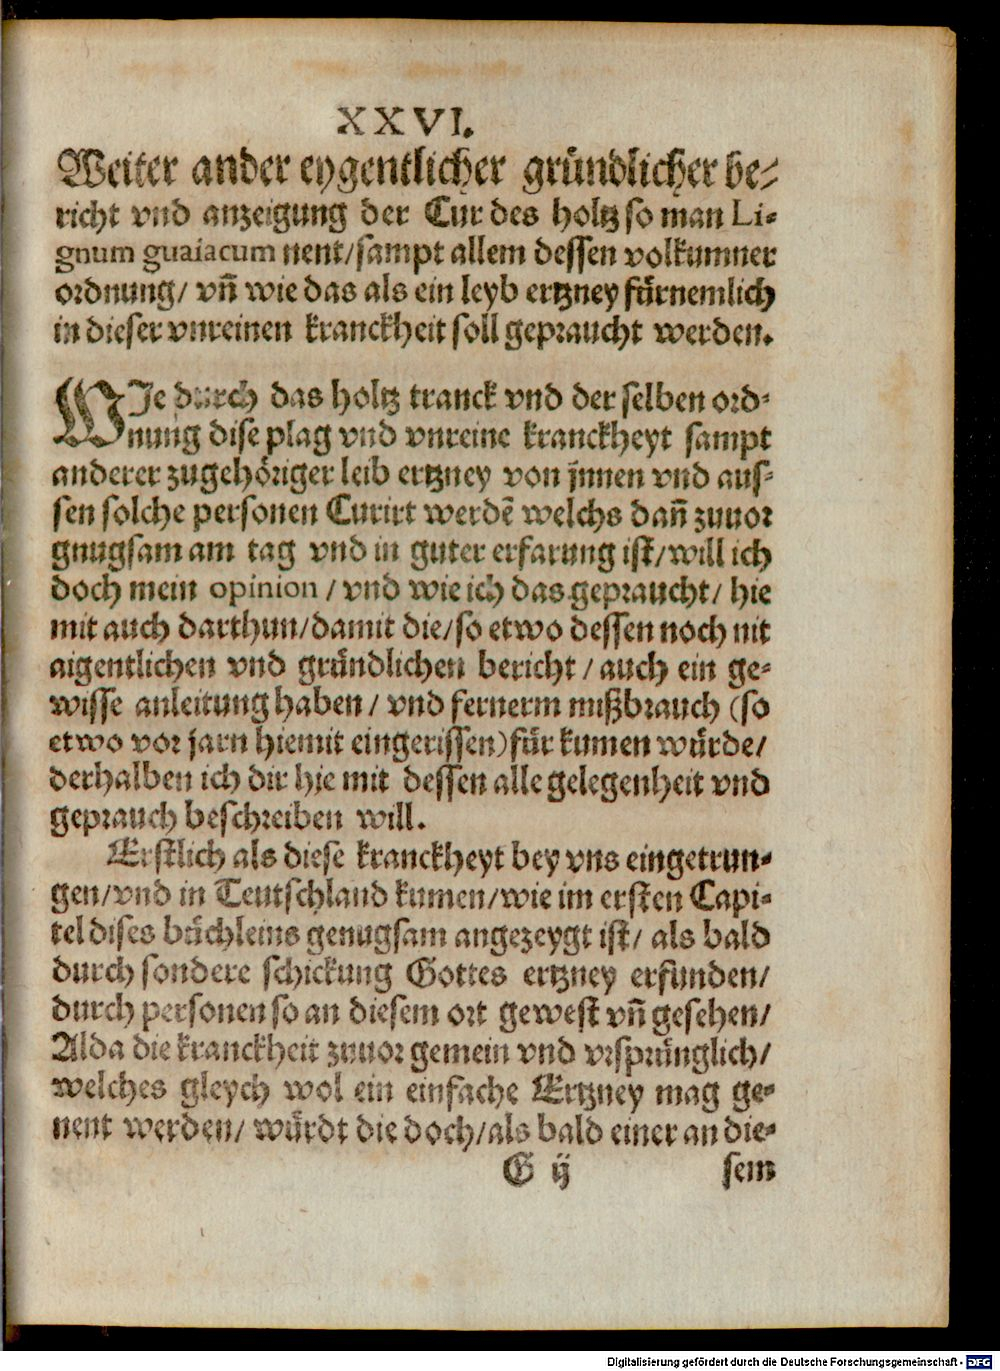 XXVI.
Weiter ander eygentlicher gründlicher be⸗
richt vnd anzeigung der Cur des holtz so man Li⸗
gnum guaiacum nent/sampt allem dessen volkumner
ordnung/ vn̄ wie das als ein leyb ertzney fürnemlich
in dieser vnreinen kranckheit soll gepraucht werden.
WJe durch das holtz tranck vnd der selben ord⸗
nung dise plag vnd vnreine kranckheyt sampt
anderer zugehöriger leib ertzney von jnnen vnd aus⸗
sen solche personen Curirt werdē welchs dan̄ zuuor
gnugsam am tag vnd in guter erfarung ist/will ich
doch mein opinion / vnd wie ich das gepraucht/ hie
mit auch darthun/damit die/so etwo dessen noch nit
aigentlichen vnd gründlichen bericht / auch ein ge⸗
wisse anleitung haben / vnd fernerm mißbrauch (so
etwo vor jarn hiemit eingerissen) für kumen würde/
derhalben ich dir hie mit dessen alle gelegenheit vnd
geprauch beschreiben will.
Erstlich als diese kranckheyt bey vns eingetrun⸗
gen/vnd in Teutschland kumen/wie im ersten Capi⸗
tel dises büchleins genugsam angezeygt ist/ als bald
durch sondere schickung Gottes ertzney erfunden/
durch personen so an diesem ort gewest vn̄ gesehen/
Alda die kranckheit zuuor gemein vnd vrsprünglich/
welches gleych wol ein einfache Ertzney mag ge⸗
nent werden/ würdt die doch/als bald einer an die⸗
G ij sem
Digitalisierung gefördert durch die Deutsche Forschungsgemeinschaft - DFG